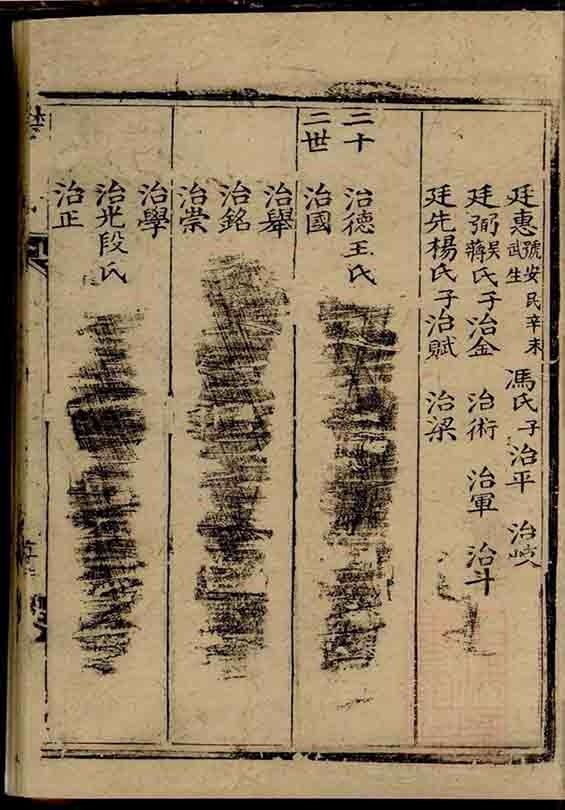 廷惠號安民辛未武生馮氏子治平 治岐
廷弼吴蔣氏子治金 治術 治軍 治斗
廷先楊氏子治賦 治梁
二十二世
治德王氏
治國
治舉
治銘
治崇
治學
治光段氏
治正